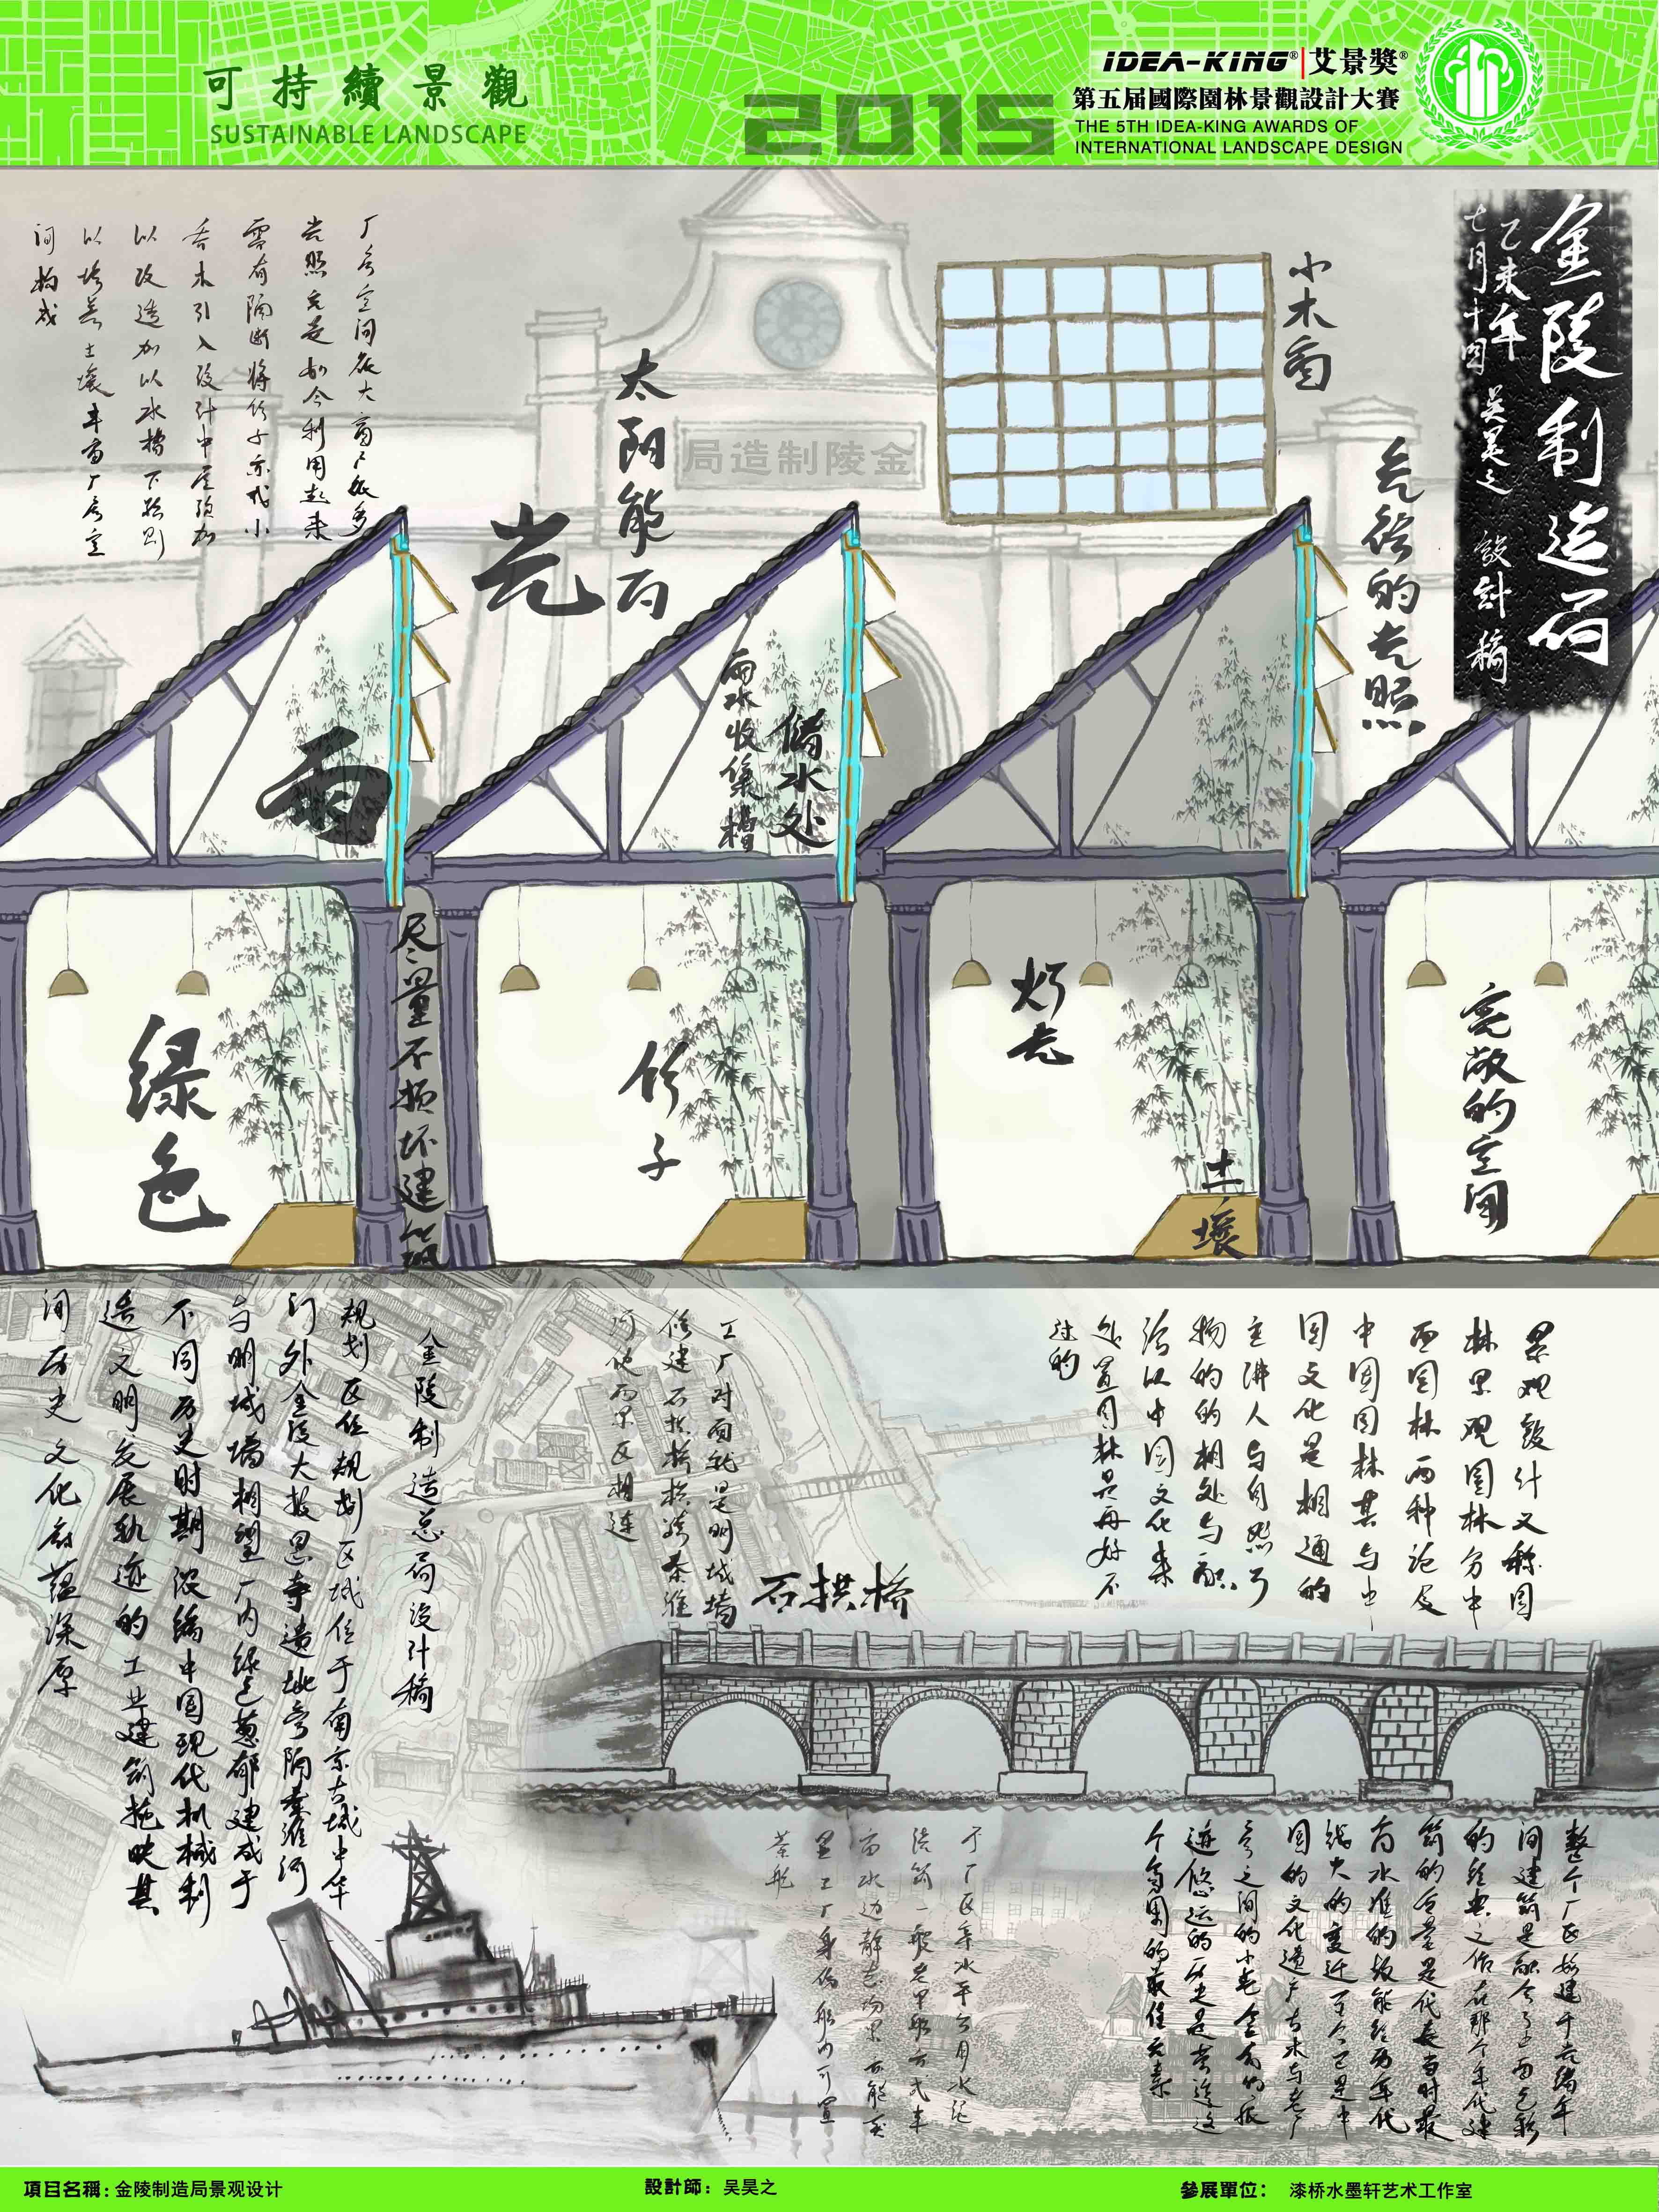 可持續景觀
SUSTAINABLE LANDSCAPE
2015
IDEA-KING®|艾景獎®
第五届國際園林景觀設計大賽
THE 5TH IDEA-KING AWARDS OF
INTERNATIONAL LANDSCAPE DESIGN
金陵制造局
乙未年
七月十四
吴昊之
設計稿
小木窗
充裕的光照
太阳能百
光
局造制陵金
厂房空间采大窗户很多
光照充足如今利用起来
需有隔断将竹子亦或小
乔木引入设计中屋顶加
以改造加以水槽下孙则
以培养土壤丰富厂房空
间构成
雨
雨水收集槽
储水处
绿色
尽量不损坏建筑
竹子
灯光
土壤
亮敞的空间
金陵制造总局设计稿
规划区位规划区域位于南京古城中华
门外金陵大报恩寺遗址旁隔秦淮河
与明城墙相望厂内绿色葱郁建成于
不同历史时期浓缩中国现代机械制
造文明发展轨迹的工业建筑掩映其
间历史文化底蕴深厚
工厂对面就是明城墙
修建石拱桥横跨秦淮
河使两景区相连
石拱桥
景观设计又称园
林景观园林分中
西园林两种论及
中国园林其与中
国文化是相通的
主讲人与自然了
物的的相处与融
洽以中国文化来
处置园林是再好不
过的
整个厂区始建于光绪年
间建筑是融合了
的经典之作在那个年代建
筑的合量是代表当时最
高水准的故能经历年代
的变迁至今已是中
国的文化遗产古木与老厂
房之间的
迹悠远的历史是营造这
个氛围的最佳元素
项目名稱：金陵制造局景观设计
設計師：吴昊之
參展單位：漆桥水墨轩艺术工作室